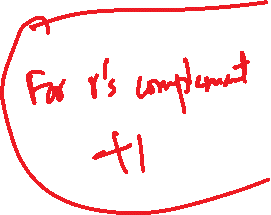 For r's complement
+1